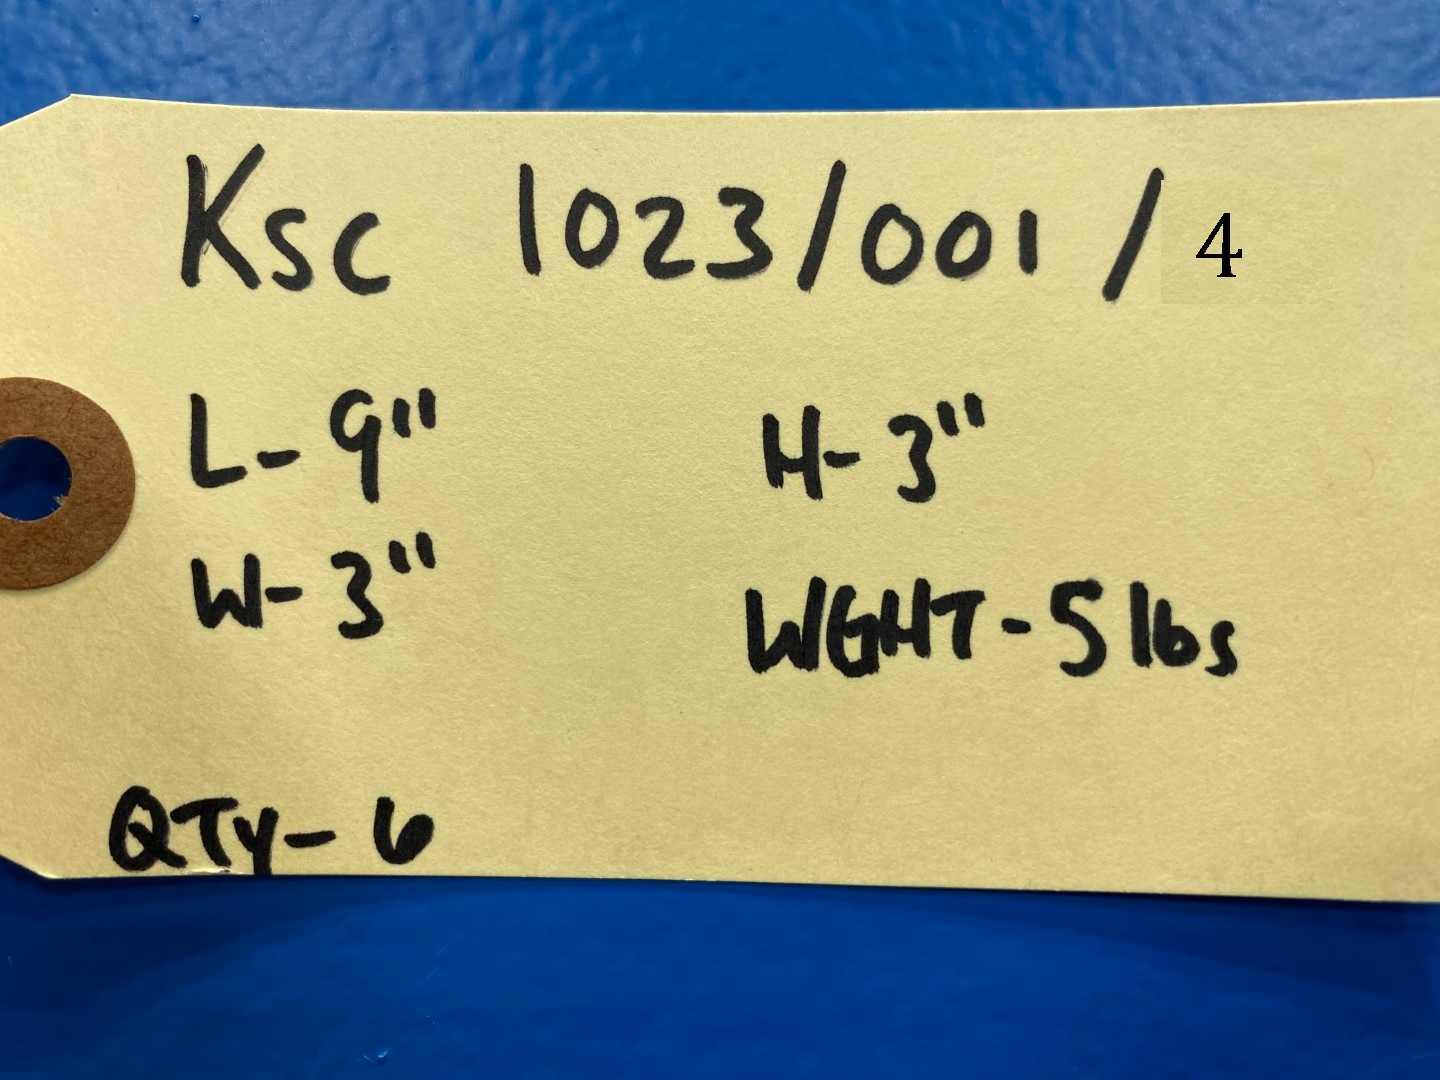 Ksc 1023/001/4
L-9" H-3"
W-3" WGHT-5lbs
QTY-6